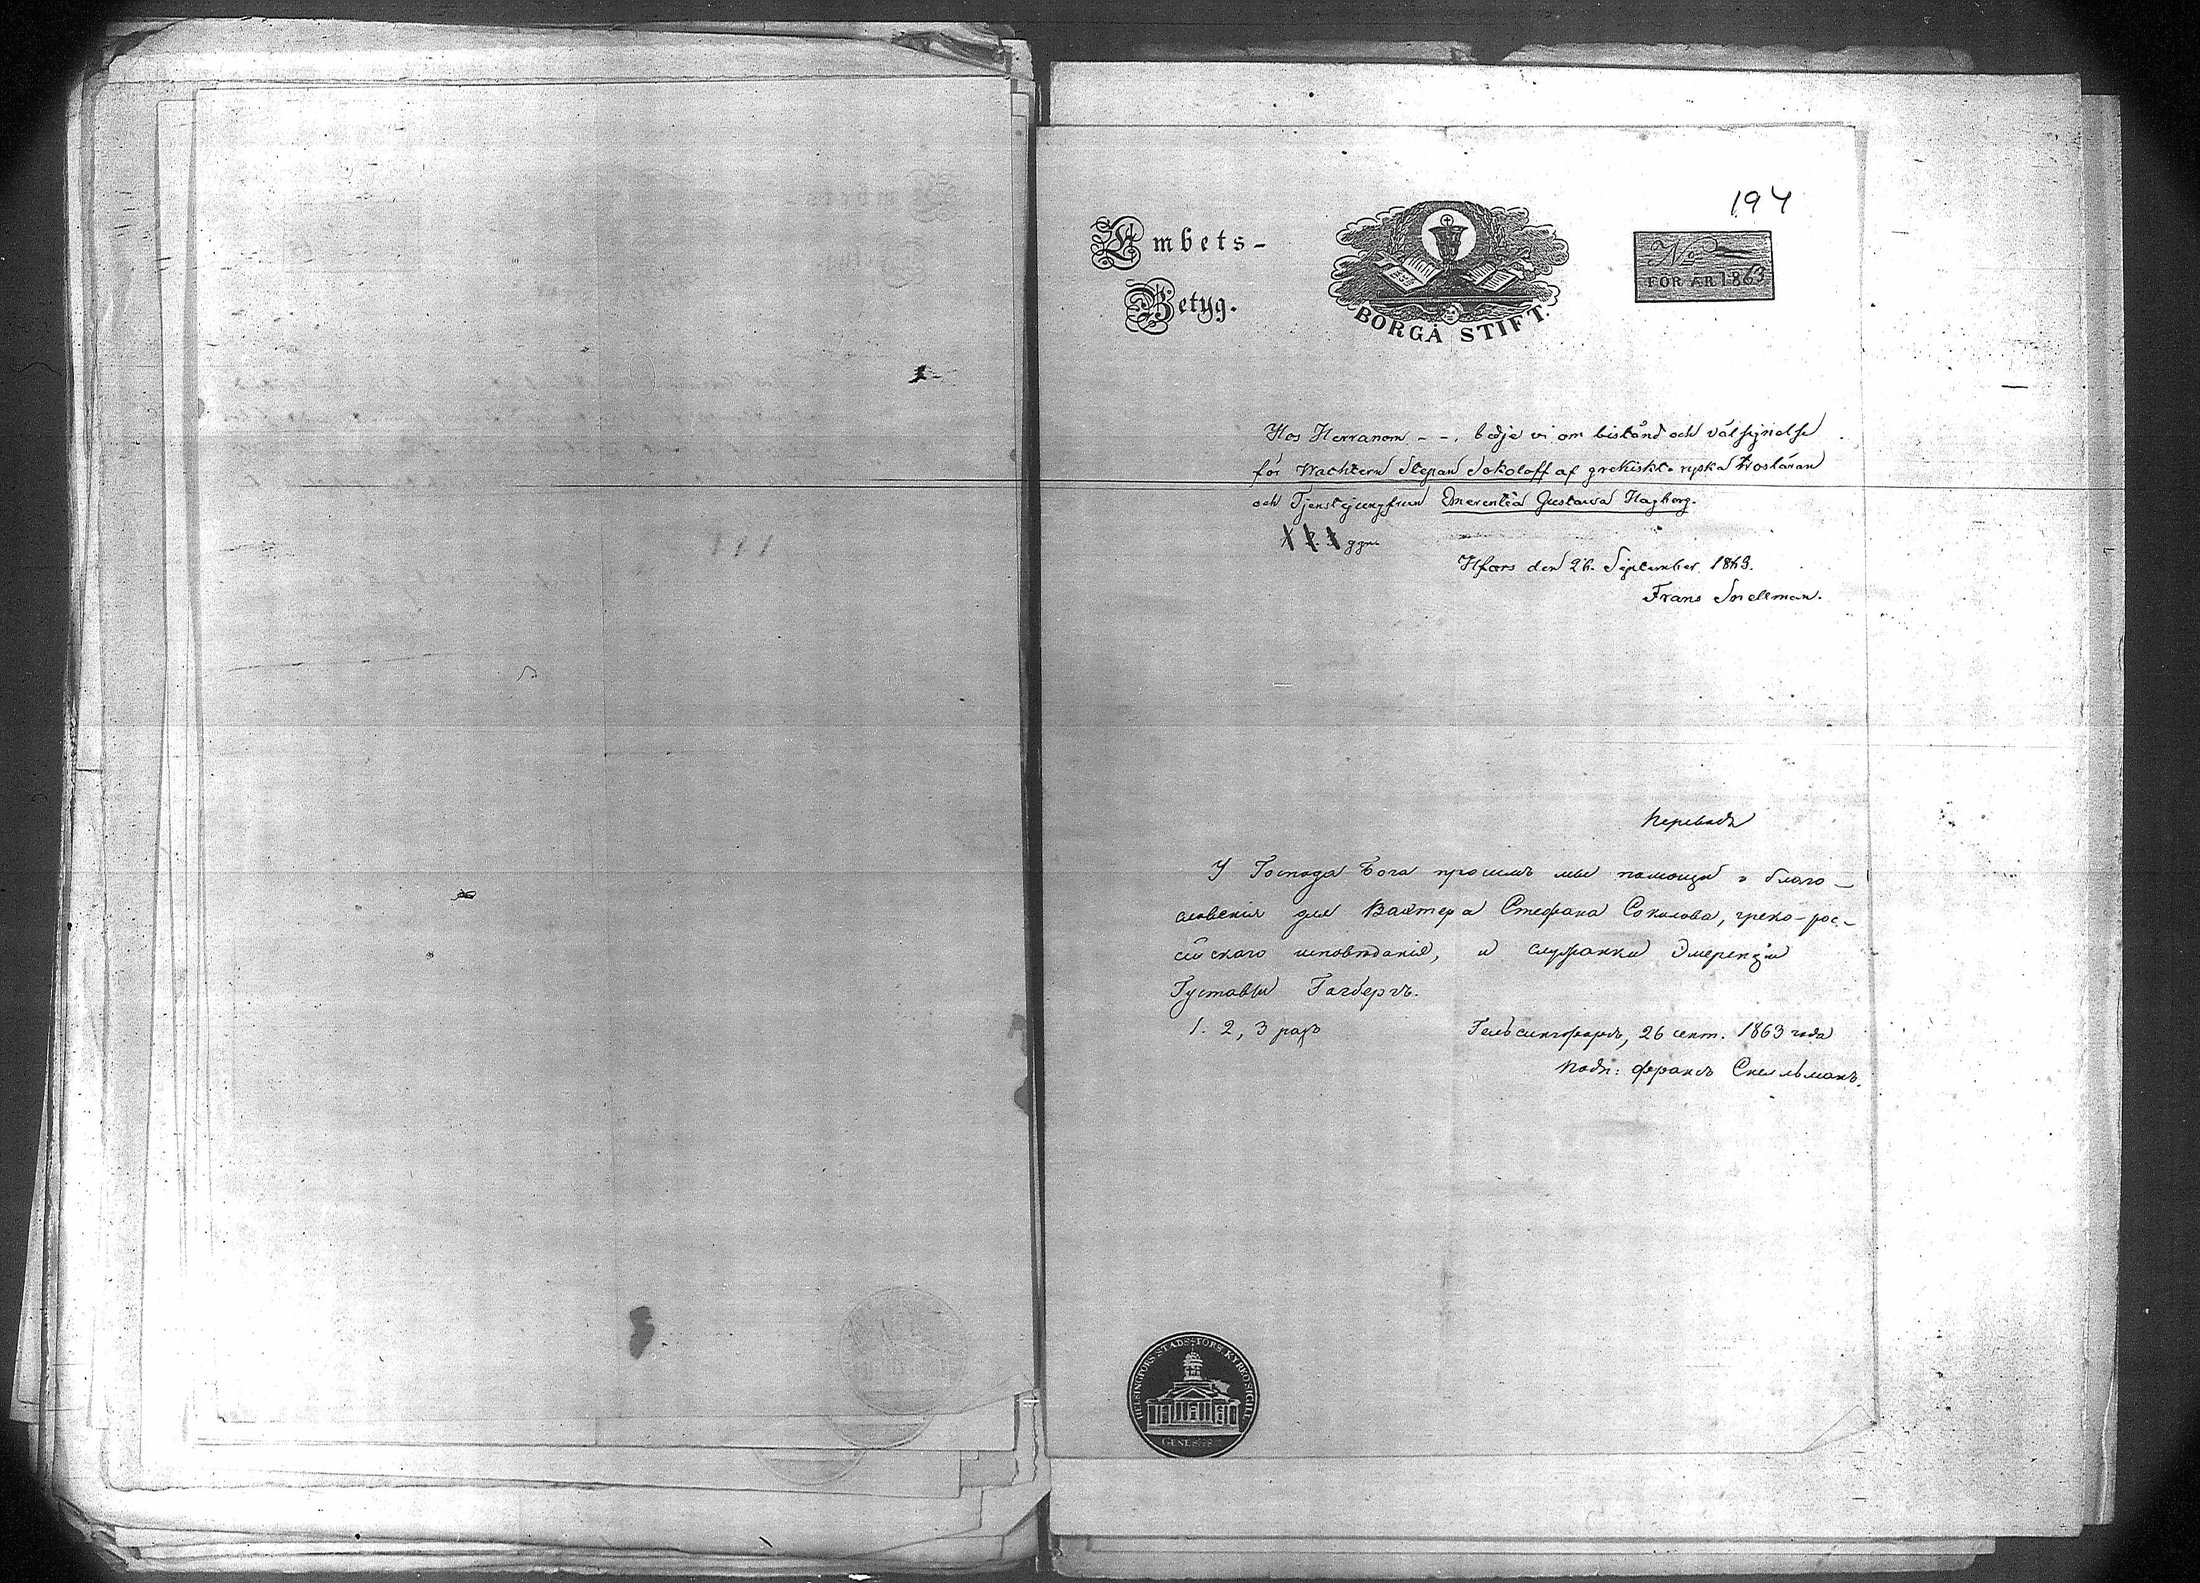 194
Embets-
Betyg.
No
FÖR ÅR 1863
BORGÅ STIFT.
Hos Herranom - -, bedje vi om bistånd och välsignelse
för Wachtern Stepan Sokoloff af grekiskt-ryska trosläran
och Tjenstejungfrun Emerentia Gustava Hagberg.
ggn.
Hfors den 26. September 1863.
Frans Snellman.
Переводъ
У Господа Бога просимъ мы помощи и благо-
словенія для Вахтера Стефана Соколова, греко-рос-
сійскаго исповѣданія, и служанки Эмеренціи
Густавы Гагбергъ.
1. 2, 3 разъ
Гельсингфорсъ, 26 сент. 1863 года
Подп: Франсъ Снелльманъ.
HELSINGFORS STADS-FÖRS. KYRKO SIGILL